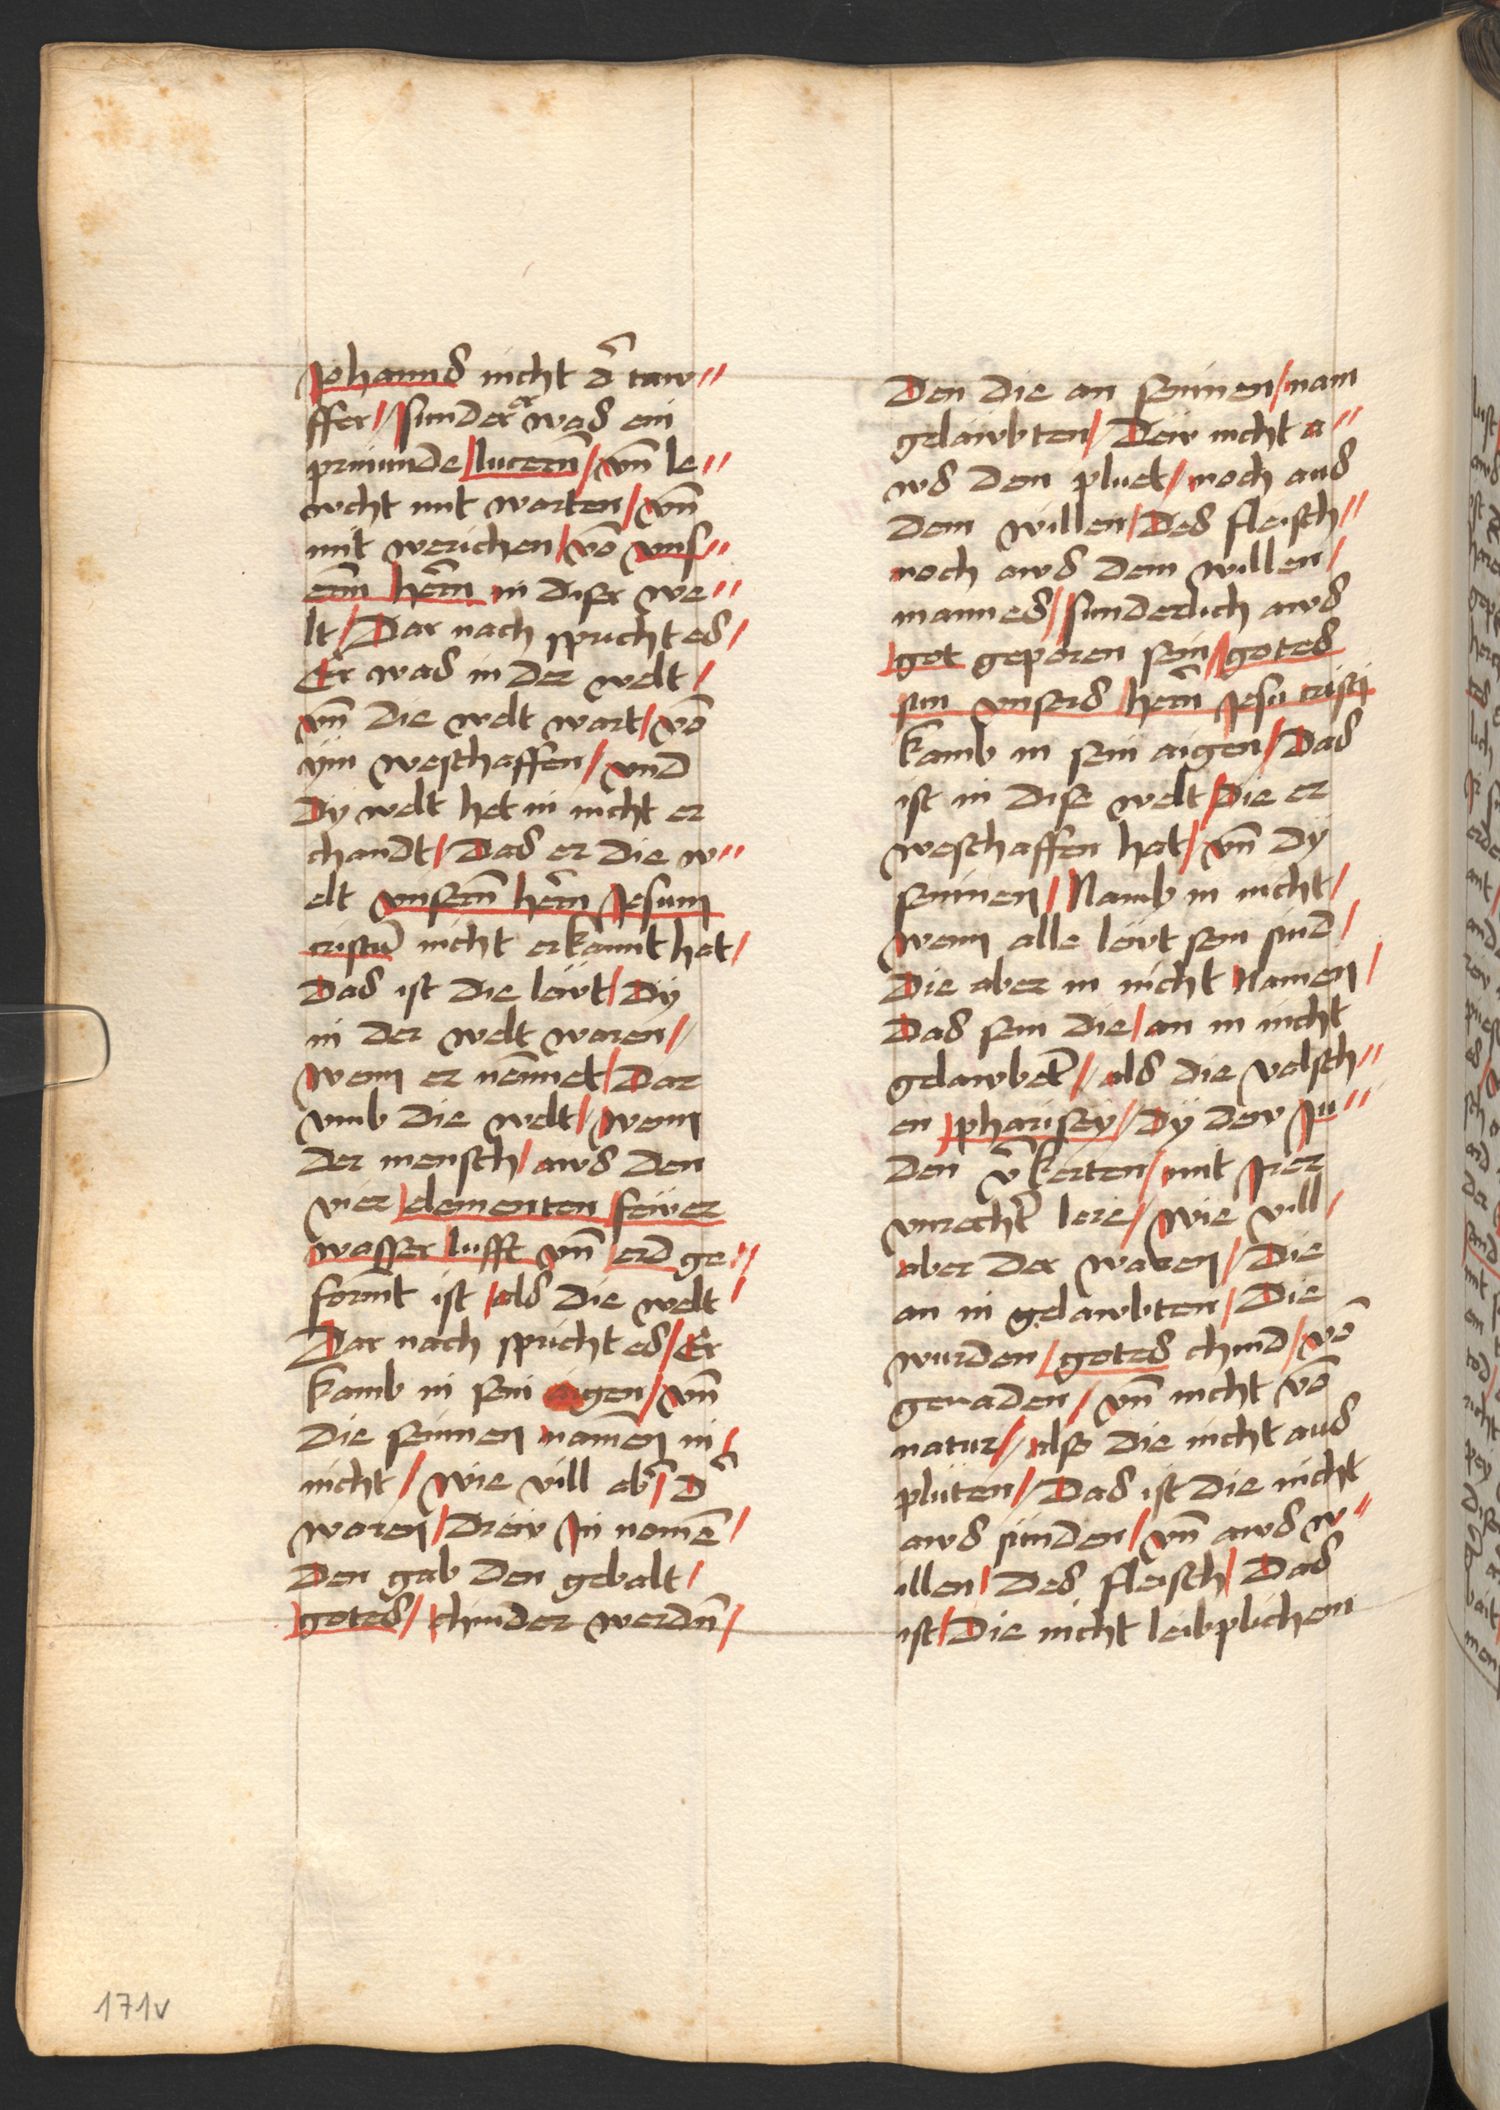 Johanns nicht d̄ taw//
ffer// sunder er was ein
prinunde lucern/ vn̄ le//
wcht mit warten/ vn̄
mit werichen/ vō vns//
erm̄ hern̄ in diser we//
lt/ Dar nach spricht es/
Er was in der welt/
vn̄ die welt wart/ vō
ym weschaffen/ vnd
Dy welt het in nicht er
chandt/ Das er die w//
elt vnsern̄ hern̄ Jesum
cristū nicht erkannt hat/
Das ist die lewt/ Dy
in der welt waren/
Wenn er nennet/ Dar
vmb die welt/ wenn
Der mensch/ aws den
vier elementen fewer
wasser lufft vn̄ erd ge//
formt ist/ als die welt/
Dar nach spricht es/ Er
kamb in sein aigen/ vn̄
die seinnen namen in/
nicht/ Wie vill ab̄/ D̄
waren/ Drew Jn nomē/
Den gab den gebalt/
gotes/ chinder werdn̄/
Den die an seinen/ nam
gelawbten/ Dew nicht a//
ws den pluet/ noch aus
dem willen/ Des fleisch//
noch aws dem willen/
mannes/ sunderlich aws
got geporen sein/ gotes
sun vnsers hern̄ Jesu cristi
kamb in sein aigen/ Das
ist in dise welt/ Die er
weschaffen hat/ vn̄ dÿ
seinnen/ Namb in nicht/
wenn alle lewt sein sind/
Die aber in nicht Namen/
Das sein die/ an in nicht
gelawbet̄// als die valsch//
en pharisey/ Dÿ dew Ju//
den v̄kerten/ mit Jrer
vnrecht̄ lere/ Wie vill/
aber der waren/ Die
an in gelawbten/ Die
wurden/ gotes chind/ vō
genaden/ vn̄ nicht vō
natur// alse die nicht aus
plüten/ Das ist die nicht
aws sunden/ vn̄ aws w//
illen/ Des fleisch/ Das
ist/ Die nicht leibplichen
171v